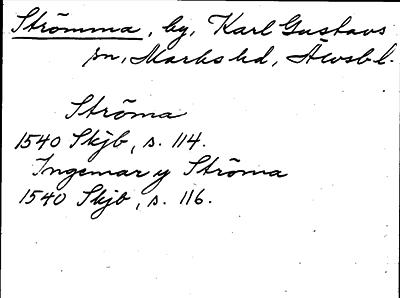 Strömma, by, Karl Gustavs
sn, Marks hd, Älvsb l.
Ströma
1540 Skjb, s. 114.
Ingemar y Ströma
1540 Skjb, s. 116.